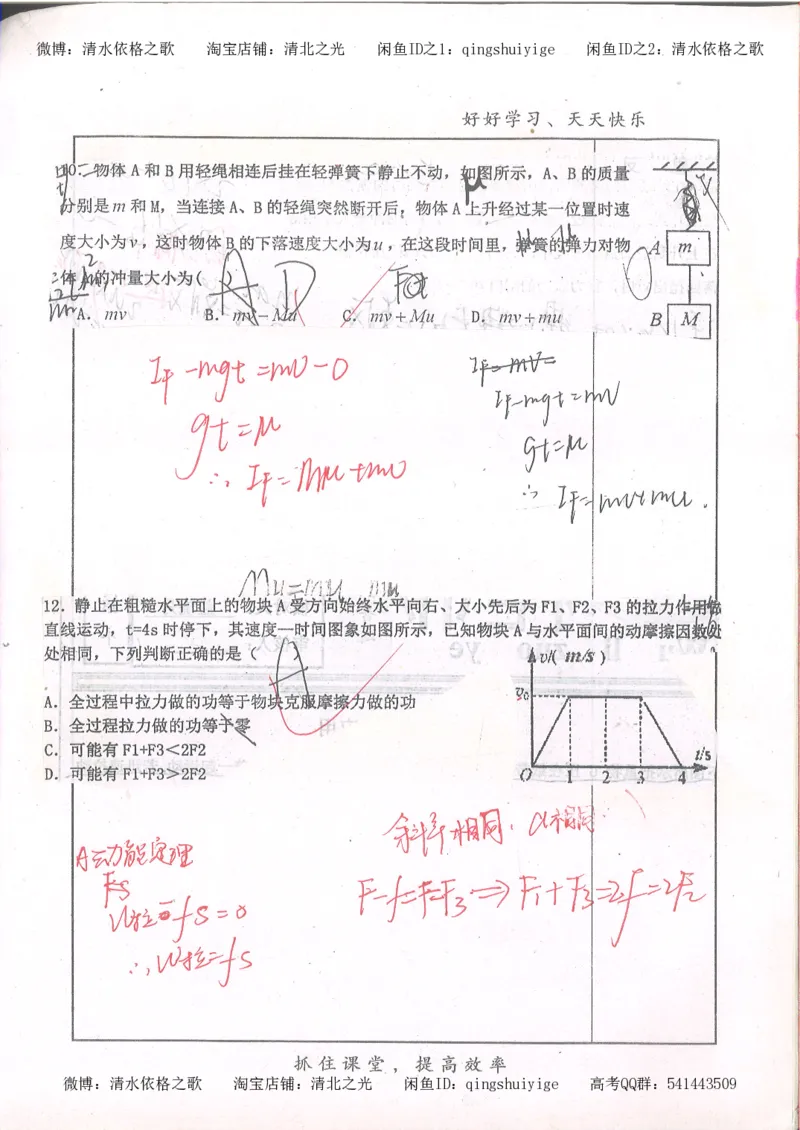 微博：清水依格之歌 淘宝店铺：清北之光 闲鱼ID之1：qingshuiyige 闲鱼ID之2：清水依格之歌
好好学习、天天快乐
10．物体 A 和 B 用轻绳相连后挂在轻弹簧下静止不动，如图所示，A、B 的质量
分别是 m 和 M，当连接 A、B 的轻绳突然断开后，物体 A 上升经过某一位置时速
度大小为 v，这时物体 B 的下落速度大小为 u，在这段时间里，弹簧的弹力对物
体 A 的冲量大小为( )
A
D
A. mv B. mv－Mu C. mv＋Mu D. mv＋mu
A m
B M
I_F -mgt =mv-0
gt=μ
∴ I_F = mμ+mv
I_F=mv=
I_F-mgt=mv
gt=μ
∴ I_F=mv+mu.
12．静止在粗糙水平面上的物块 A 受方向始终水平向右、大小先后为 F1、F2、F3 的拉力作用做
直线运动，t=4s 时停下，其速度—时间图象如图所示，已知物块 A 与水平面间的动摩擦因数处
处相同，下列判断正确的是（ A ）
A．全过程中拉力做的功等于物块克服摩擦力做的功
B．全过程拉力做的功等于零
C．可能有 F1+F3＜2F2
D．可能有 F1+F3＞2F2
v/( m/s )
v₀
t/s
O 1 2 3 4
A动能定理
Fs
W拉-fs=0
∴W拉=fs
斜率相同，a相同
F-f=f-F3⇒F1+F3=2f=2F2
抓住课堂，提高效率
微博：清水依格之歌 淘宝店铺：清北之光 闲鱼ID：qingshuiyige 高考QQ群：541443509